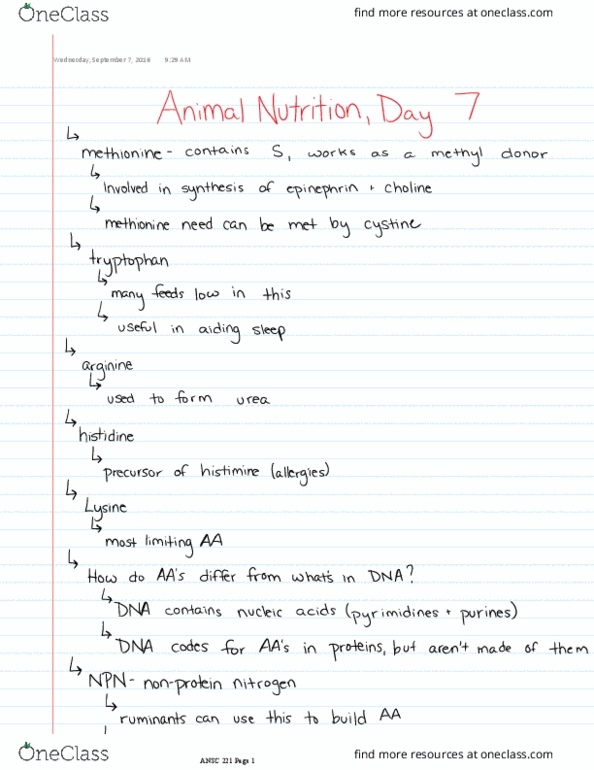 OneClass
find more resources at oneclass.com
Wednesday, September 7, 2016 9:29 AM
Animal Nutrition, Day 7
methionine - contains S, works as a methyl donor
Involved in synthesis of epinephrin + choline
methionine need can be met by cystine
tryptophan
many feeds low in this
useful in aiding sleep
arginine
used to form urea
histidine
precursor of histimine (allergies)
Lysine
most limiting AA
How do AA's differ from what's in DNA?
DNA contains nucleic acids (pyrimidines + purines)
DNA codes for AA's in proteins, but aren't made of them
NPN - non-protein nitrogen
ruminants can use this to build AA
OneClass
ANSC 221 Page 1
find more resources at oneclass.com